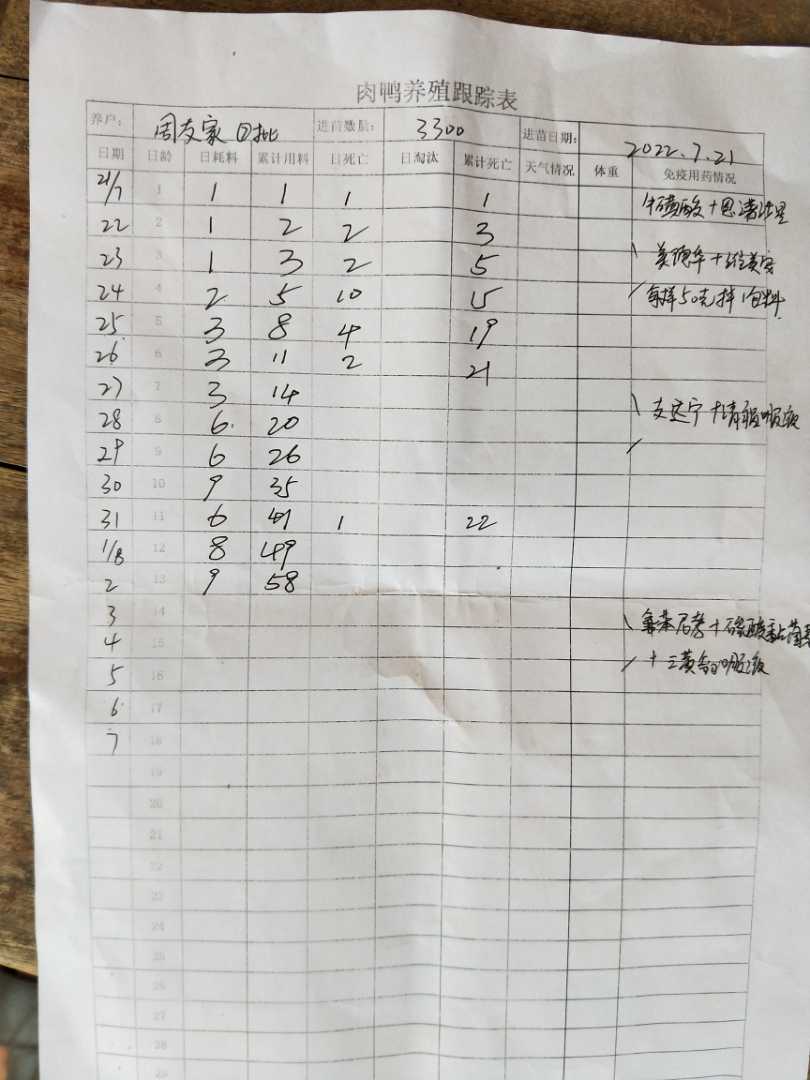 肉鸭养殖跟踪表
养户: 周友家 ②批 进苗数量: 3300 进苗日期: 2022.7.21
日期 日龄 日耗料 累计用料 日死亡 日淘汰 累计死亡 天气情况 体重 免疫用药情况
21/7 1 1 1 1 1
22 2 1 2 2 3
23 3 1 3 2 5
24 4 2 5 10 15 每样50克拌1包料
25 5 3 8 4 19
26 6 3 11 2 21
27 7 3 14
28 8 6 20
29 9 6 26
30 10 9 35
31 11 6 41 1 22
1/8 12 8 49
2 13 9 58
3 14
4 15
5 16
6 17
7 18
19
20
21
22
23
24
25
26
27
28
29